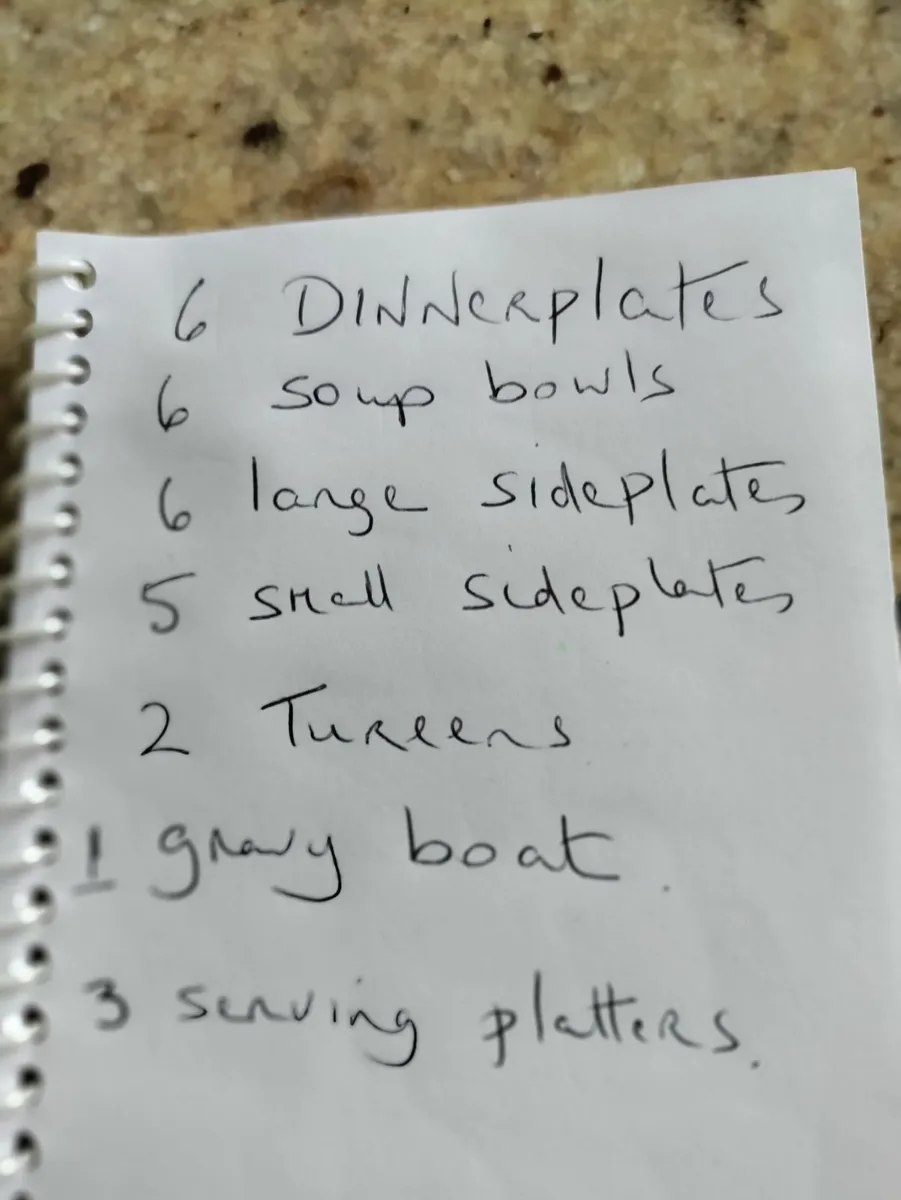 6 DINNERplates
6 soup bowls
6 large sideplates
5 small sideplates
2 Tureens
1 gravy boat.
3 serving platters.